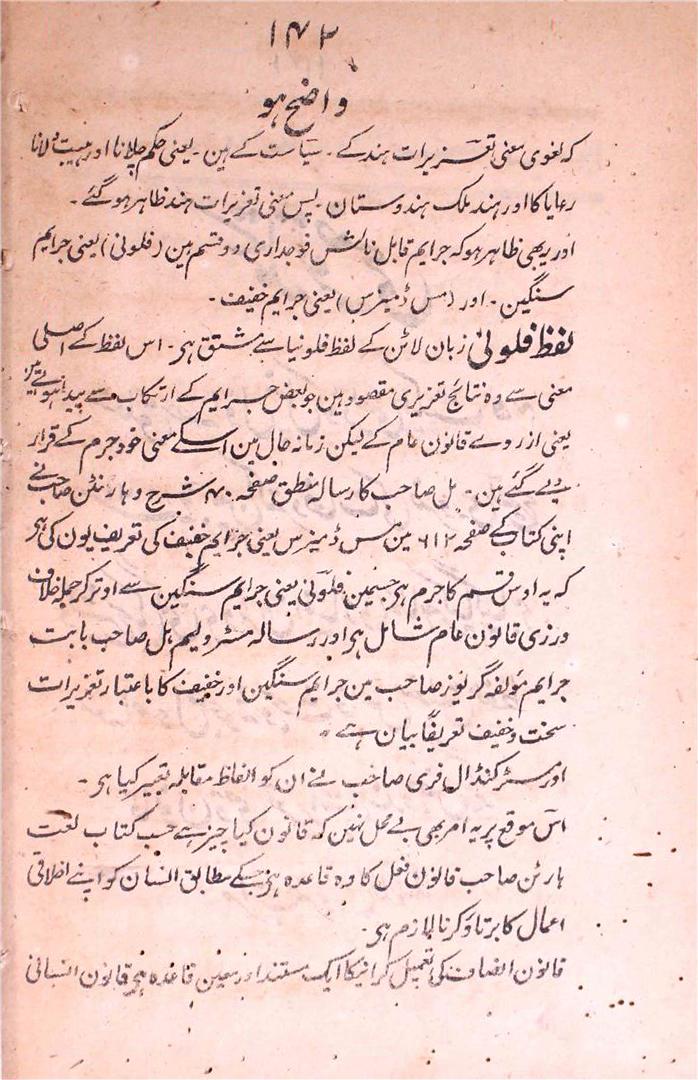 ۱۴۲
واضح ہو
کہ لغوی معنی تعزیرات ہند کے ۔ سیاست کے ہین ۔ یعنی حکم چلانا اور ہیبت دلانا
رعایا کا اور ہند ملک ہندوستان ۔ پس معنی تعزیرات ہند ظاہر ہو گئے ۔
اور یہ بھی ظاہر ہو کہ جرایم قابل نالش فوجداری دو قسم ہین (فلونی) یعنی جرایم
سنگین ۔ اور (مس ڈمینرس) یعنی جرایم خفیف ۔
لفظ فلونی زبان لاٹن کے لفظ فلونیا سے مشتق ہی ۔ اس لفظ کے اصلی
معنی سے وہ نتائج تعزیری مقصود ہین جو بعض جرایم کے ارتکاب سے پیدا ہوتے ہین
یعنی از روے قانون عام کے لیکن زمانہ حال مین اسکے معنی خود جرم کے قرار
دیے گئے ہین ۔ مل صاحب کا رسالہ منطق صفحہ ۷۰ شرح و ہارنٹن صاحب نے
اپنی کتاب کے صفحہ ۶۱۲ مین مس ڈمینرس یعنی جرایم خفیف کی تعریف یون کی ہی
کہ یہ اوس قسم کا جرم ہی جسمین فلونی یعنی جرایم سنگین سے اوتر کر جملہ خلاف
ورزی قانون عام شامل ہی اور رسالہ مسٹر ولیم ہل صاحب بابت
جرایم مؤلفہ گریوز صاحب مین جرایم سنگین اور خفیف کا باعتبار تعزیرات
سخت و خفیف تعریفاً بیان ہے ۔
اور مسٹر کنڈال فری صاحب نے ان کو الفاظ مقابلہ تعبیر کیا ہی ۔
اس موقع پر یہ امر بھی بے محل نہین کہ قانون کیا چیز ہے حسب کتاب لغت
ہارٹن صاحب قانون فعل کا وہ قاعدہ ہی جسکے مطابق انسان کو اپنے اخلاقی
اعمال کا برتاؤ کرنا لازم ہی ۔
قانون انصاف کی تعمیل کرانیکا ایک مستند اور معین قاعدہ ہی قانون انسانی